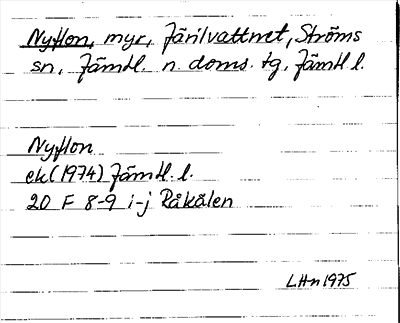 Nyflon, myr, Järilvattnet, Ströms
sn, Jämtl. n. doms. tg, Jämtl l.
Nyflon
ek (1974) Jämtl. l.
20 F 8-9 i-j Råkälen
LHm 1975